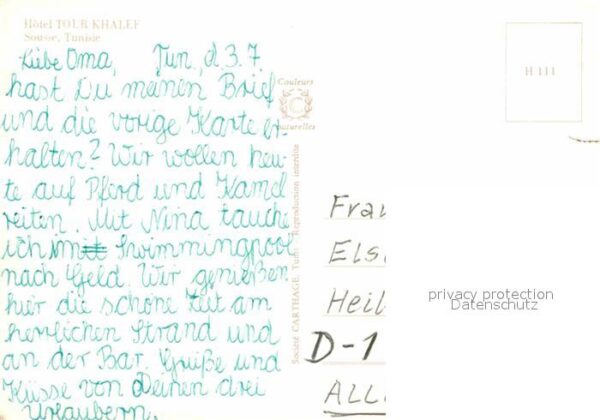 Hôtel TOUR KHALEF
Sousse, Tunisie
Liebe Oma, Tun., d. 3.7.
hast Du meinen Brief
und die vorige Karte er-
halten? Wir wollen heu-
te auf Pferd und Kamel
reiten. Mit Nina tauche
ich im Swimmingpool
nach Geld. Wir genießen
hier die schöne Zeit am
herrlichen Strand und
an der Bar. Grüße und
Küsse von Deinen drei
Urlaubern.
Couleurs
naturelles
Société CARTHAGE, Tunis - Reproduction interdite
H 111
Frau
Els
Heil
D-1
ALL
privacy protection
Datenschutz